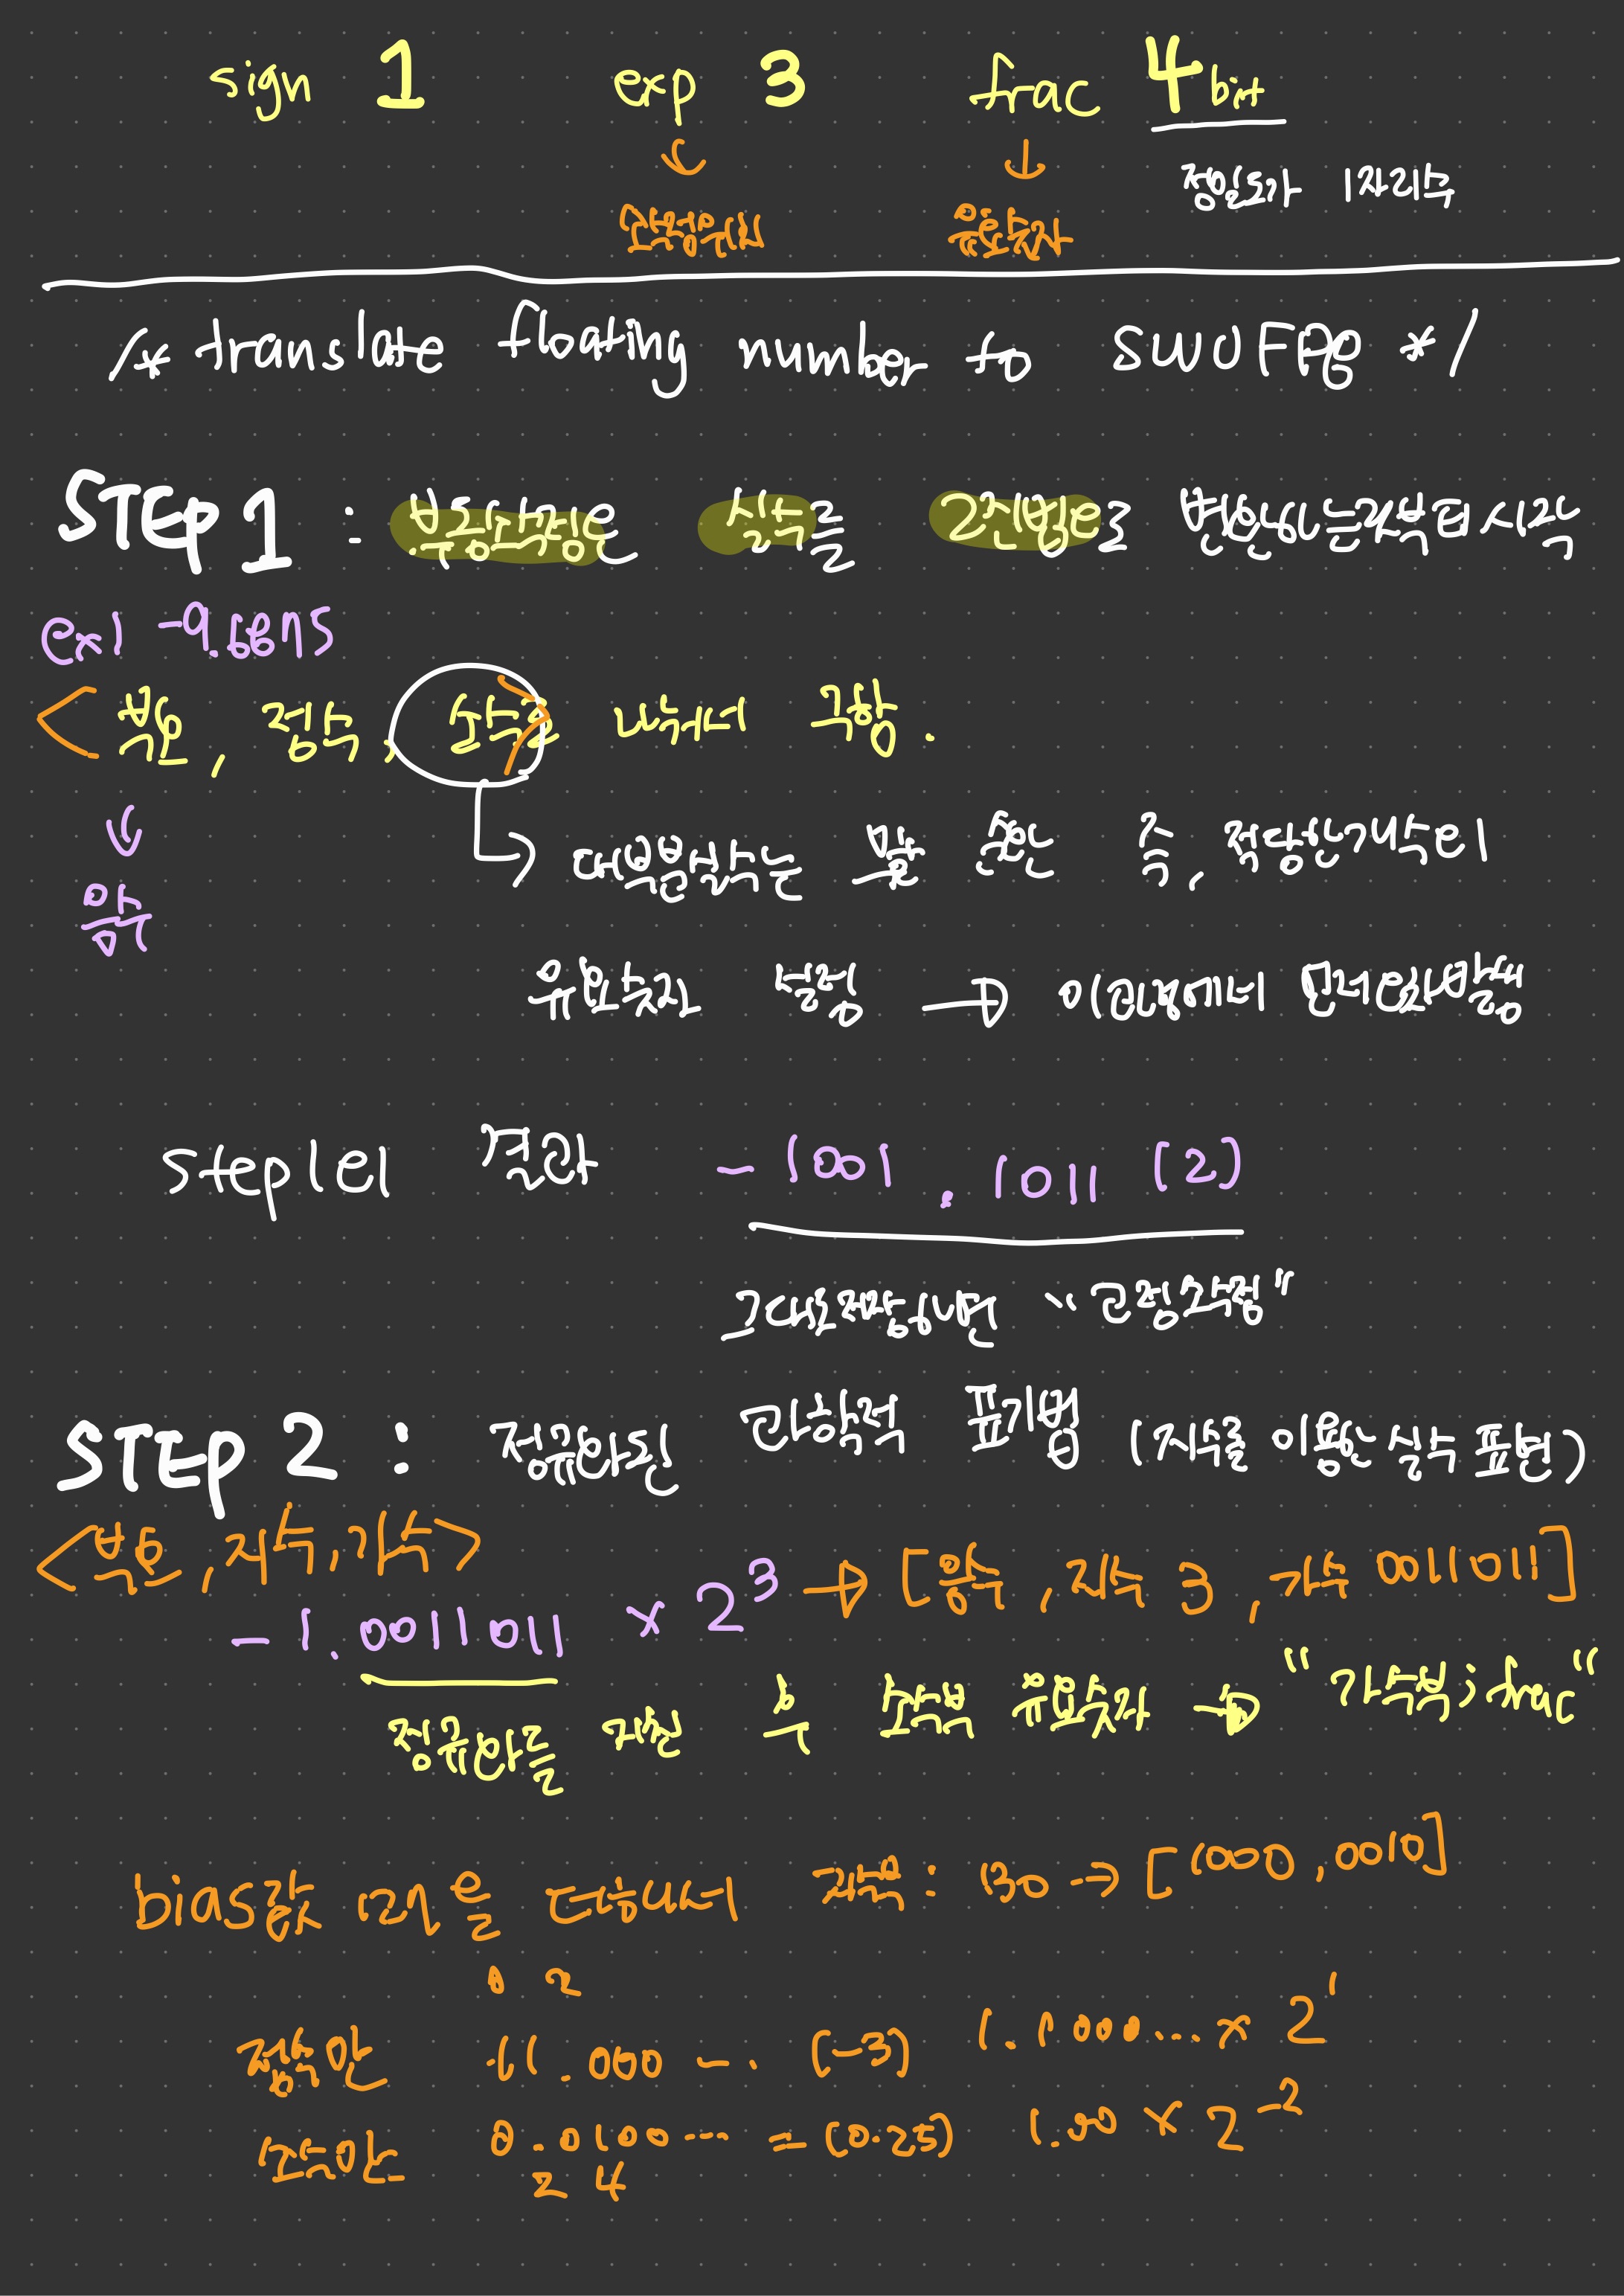 sign 1 exp 3 frac 4 bit
정밀도가 1자리수
소수점어디 유효숫자
/* translate floating number to SWUFP8 */
STEP 1 : 부동소수점은 실수를 2진법으로 변환하는 것부터 시작
ex1 -9.6875
<부호, 정수, 소수> 나눠서 구함.
대부분의 소수는 불 즉, 적당한 개수의
음수
유효숫자 설정 → 이 과정에서 문제 발생
step1의 결과 -1001.1011 (2)
그대로 저장하면 "고정소수점"
STEP 2 : 정규화된 과학적 표기법 (지수를 이용한 실수 표현)
<부호, 지수, 가수>
-1.0011011 × 2³ → [음수, 지수 3, 가수 0011011]
정규화를 거친 후 소수부 유효숫자 → "가수부; frac"
bias값 을 더해서 지수부: 130 → [1000,0010]
0 2
정수만 11.000... (-3) 1.1000... × 2¹
소수만 0.0100... = (0.25) 1.00 × 2⁻²
2 4